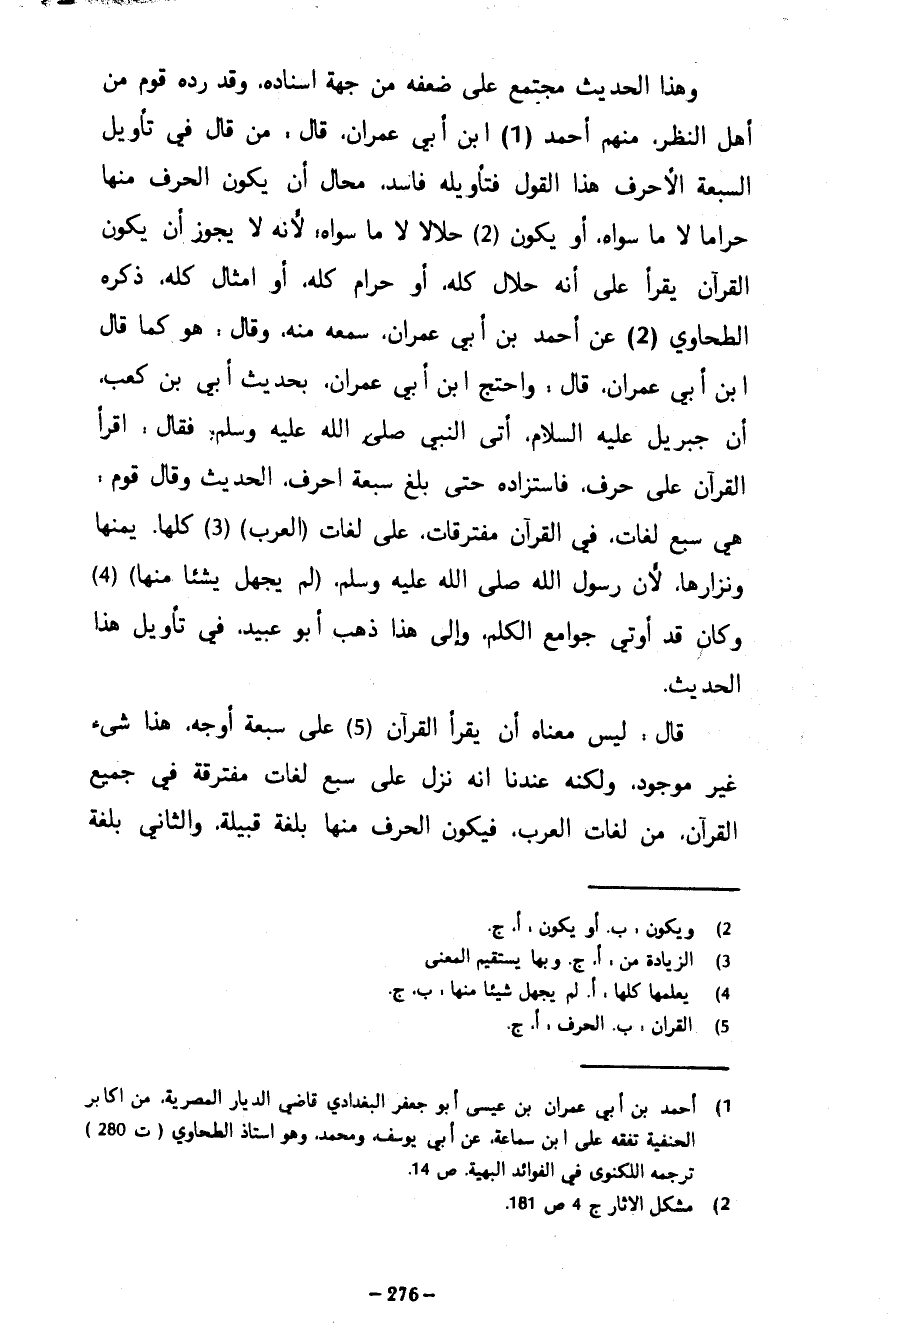 وهذا الحديث مجتمع على ضعفه من جهة اسناده، وقد رده قوم من
أهل النظر، منهم أحمد (1) ابن أبي عمران، قال : من قال في تأويل
السبعة الأحرف هذا القول فتأويله فاسد، محال أن يكون الحرف منها
حراما لا ما سواه، أو يكون (2) حلالا لا ما سواه؛ لأنه لا يجوز أن يكون
القرآن يقرأ على أنه حلال كله، أو حرام كله، أو امثال كله، ذكره
الطحاوي (2) عن أحمد بن أبي عمران، سمعه منه، وقال : هو كما قال
ابن أبي عمران، قال : واحتج ابن أبي عمران، بحديث أبي بن كعب،
أن جبريل عليه السلام، أتى النبي صلى الله عليه وسلم; فقال : اقرأ
القرآن على حرف، فاستزاده حتى بلغ سبعة احرف، الحديث وقال قوم :
هي سبع لغات، في القرآن مفترقات، على لغات (العرب) (3) كلها، يمنها
ونزارها، لأن رسول الله صلى الله عليه وسلم، (لم يجهل يشئا منها) (4)
وكان قد أوتي جوامع الكلم، وإلى هذا ذهب أبو عبيد، في تأويل هذا
الحديث.
قال : ليس معناه أن يقرأ القرآن (5) على سبعة أوجه، هذا شيء
غير موجود، ولكنه عندنا انه نزل على سبع لغات مفترقة في جميع
القرآن، من لغات العرب، فيكون الحرف منها بلغة قبيلة، والثاني بلغة
2) ويكون : ب. أو يكون : أ، ج.
3) الزيادة من : أ، ج. وبها يستقيم المعنى
4) يعلمها كلها : أ. لم يجهل شيئا منها : ب، ج.
5) القران : ب. الحرف : أ، ج.
1) أحمد بن أبي عمران بن عيسى أبو جعفر البغدادي قاضي الديار المصرية، من اكابر
الحنفية تفقه على ابن سماعة، عن أبي يوسف، ومحمد، وهو استاذ الطحاوي ( ت 280 )
ترجمه اللكنوى في الفوائد البهية. ص 14.
2) مشكل الاثار ج 4 ص 181.
- 276 -